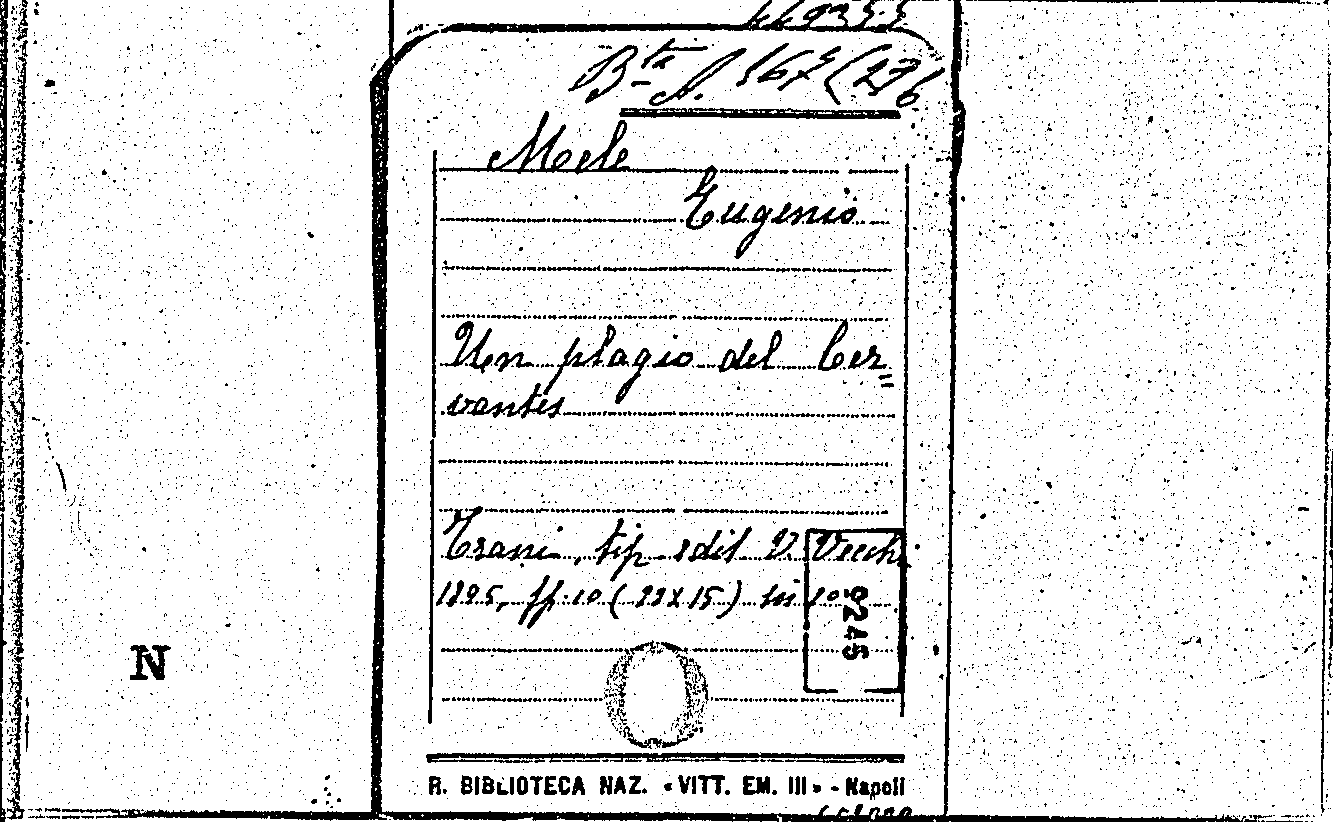 B.ta A. 167 (276
Mele
Eugenio
Un plagio del Cer=
vantes
Trani, tip. edit. V. Vecchi
1895, ff. 10 (22x15) in 10
9245
N
R. BIBLIOTECA NAZ. «VITT. EM. III» - Napoli